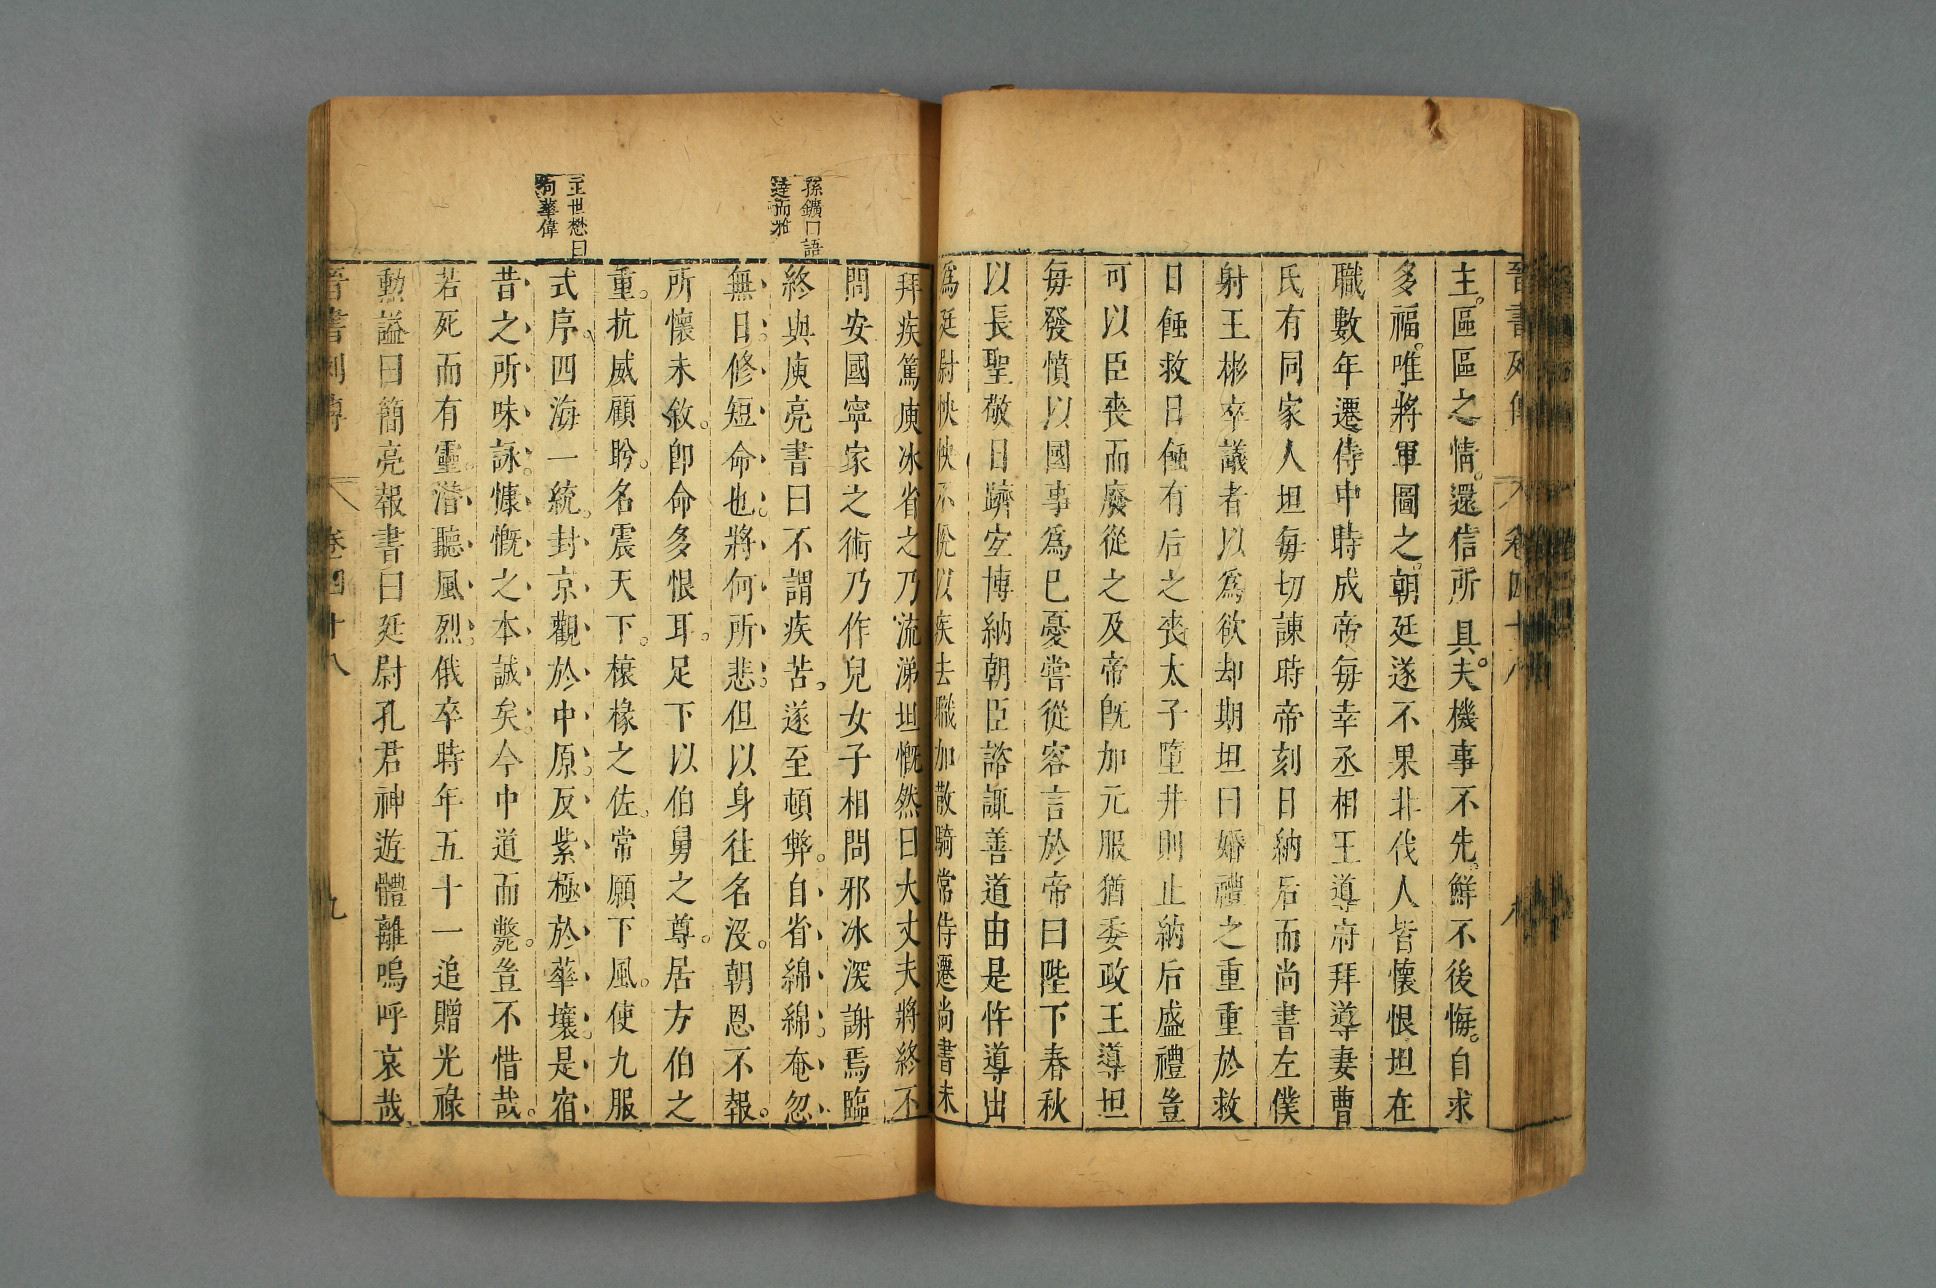 晉書列傳 卷四十八
主。區區之情。還信所具。夫機事不先。鮮不後悔。自求
多福。唯將軍圖之。朝廷遂不果北伐人皆懷恨坦在
職數年遷侍中時成帝每幸丞相王導府拜導妻曹
氏有同家人坦每切諫時帝刻日納后而尚書左僕
射王彬卒議者以爲欲却期坦曰婚禮之重重於救
日蝕救日蝕有后之喪太子墮井則止納后盛禮豈
可以臣喪而廢從之及帝旣加元服猶委政王導坦
每發憤以國事爲己憂嘗從容言於帝曰陛下春秋
以長聖敬日躋宜博納朝臣諮諏善道由是忤導出
爲廷尉怏怏不悅以疾去職加散騎常侍遷尚書未
拜疾篤庾冰省之乃流涕坦慨然曰大丈夫將終不
問安國寧家之術乃作兒女子相問邪冰深謝焉臨
孫鑛曰語
達而雅
終與庾亮書曰不謂疾苦。遂至頓弊。自省綿綿。奄忽
無日。修短命也。將何所悲。但以身往名沒。朝恩不報。
所懷未敘。卽命多恨耳。足下以伯舅之尊。居方伯之
重。抗威顧眄。名震天下。榱椽之佐。常願下風。使九服
王世懋曰
句華偉
式序。四海一統。封京觀於中原。反紫極於華壤。是宿
昔之所味詠。慷慨之本誠矣。今中道而斃。豈不惜哉。
若死而有靈。潛聽風烈。俄卒時年五十一追贈光祿
勳諡曰簡亮報書曰廷尉孔君神遊體離嗚呼哀哉
晉書列傳 卷四十八 九